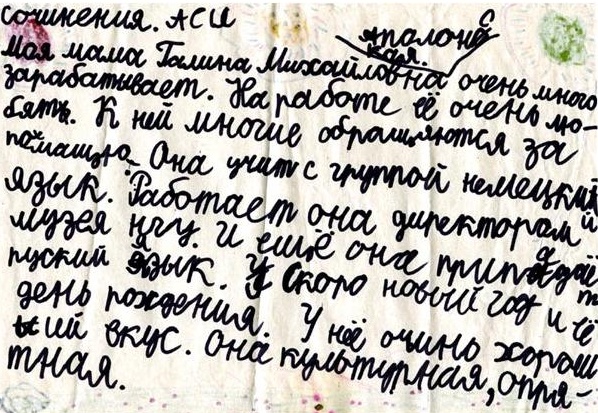 сочинения. АСИ
Аполонс
кая.
Моя мама Галина Михайловна очень много
зарабатывает. На работе её очень лю-
бять. К ней многие обращяются за
помащю. Она учит с группой немецкий
язык. Работает она директорам
музея нгу. И ещё она припадаёт
руский язык. У Скоро новый год и её
день рождения. У неё очинь хорош
ий вкус. Она культурная, опря-
тная.